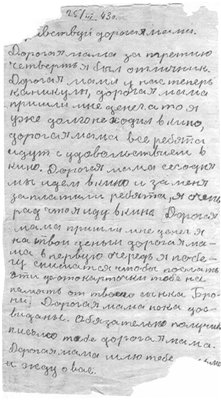 25/III 43 г.
Здравствуй дорогая мама.
Дорогая мама за третию
четверть я был отличник
Дорогая мама у нас теперь
каникули, дорогая мама
пришли мне денег а то я
уже долго не ходил в кино,
дорогая мама все ребята
идут с удовольствием в
кино. Дорогая мама сегодня
мы идем в кино и за меня
заплатили ребята, я очень
рад что я иду в кино. Дорогая
мама пришли мне денег я
на твои деньги дорогая ма-
ма в первую очередь я побе-
гу сниматся чтобы послать
эти фотокарточки тебе на
память от твоего сынка Бро-
ни. Дорогая мама пока до-
свиданье. Обязательно получи
письмо тебе дорогая мама.
Дорогая мама шлю тебе
и жду ответ.